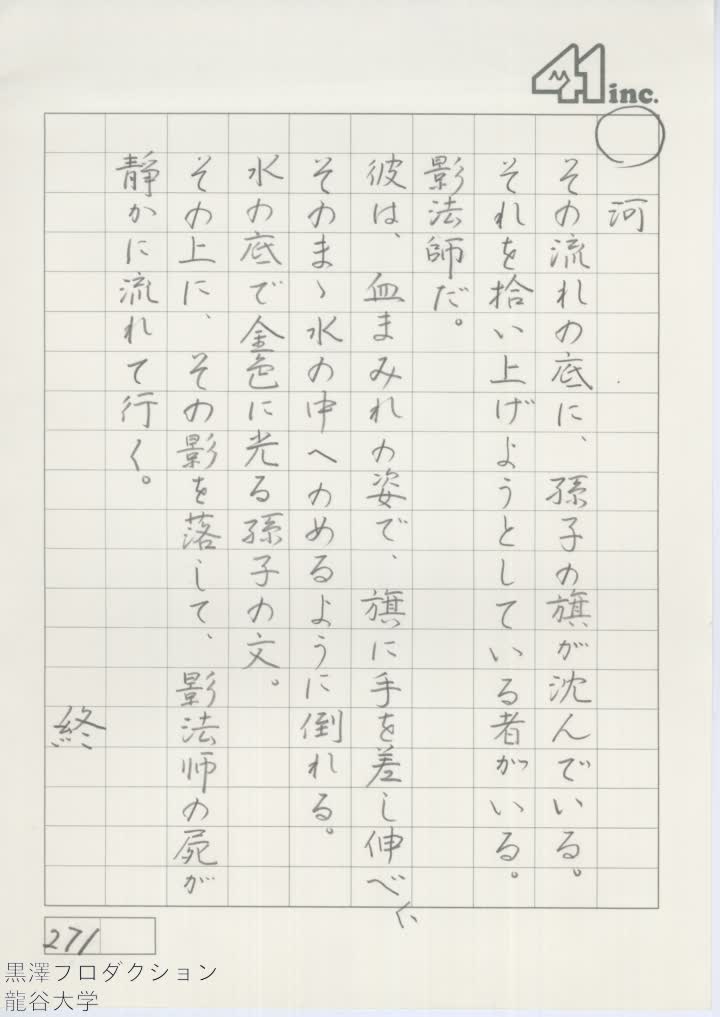 41 inc.
河
その流れの底に、孫子の旗が沈んでいる。
それを拾い上げようとしている者がいる。
影法師だ。
彼は、血まみれの姿で、旗に手を差し伸べ、
そのまゝ水の中へのめるように倒れる。
水の底で金色に光る孫子の文。
その上に、その影を落して、影法師の屍が
静かに流れて行く。
終
271
黒澤プロダクション
龍谷大学